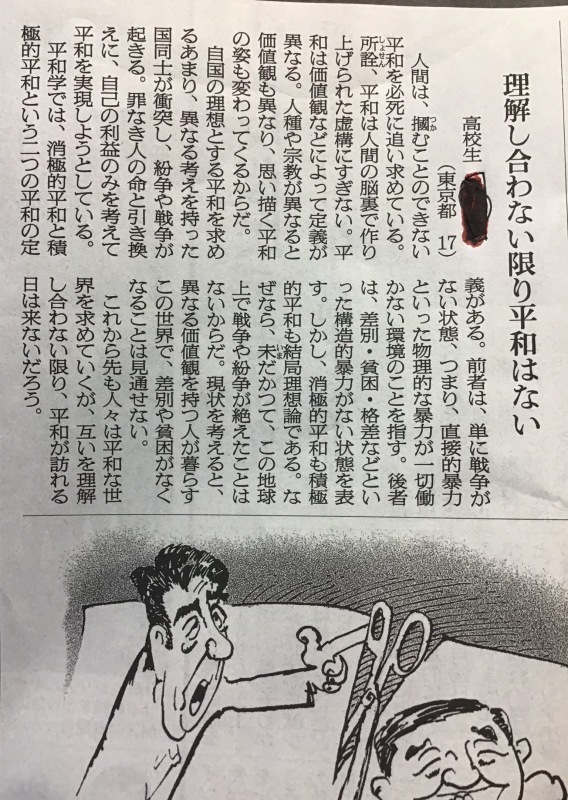 理解し合わない限り平和はない
高校生
(東京都 17)
人間は、摑むことのできない
平和を必死に追い求めている。
所詮、平和は人間の脳裏で作り
上げられた虚構にすぎない。平
和は価値観などによって定義が
異なる。人種や宗教が異なると
価値観も異なり、思い描く平和
の姿も変わってくるからだ。
自国の理想とする平和を求め
るあまり、異なる考えを持った
国同士が衝突し、紛争や戦争が
起きる。罪なき人の命と引き換
えに、自己の利益のみを考えて
平和を実現しようとしている。
平和学では、消極的平和と積
極的平和という二つの平和の定
義がある。前者は、単に戦争が
ない状態、つまり、直接的暴力
といった物理的な暴力が一切働
かない環境のことを指す。後者
は、差別・貧困・格差などとい
った構造的暴力がない状態を表
す。しかし、消極的平和も積極
的平和も結局理想論である。な
ぜなら、未だかつて、この地球
上で戦争や紛争が絶えたことは
ないからだ。現状を考えると、
異なる価値観を持つ人が暮らす
この世界で、差別や貧困がなく
なることは見通せない。
これから先も人々は平和な世
界を求めていくが、互いを理解
し合わない限り、平和が訪れる
日は来ないだろう。